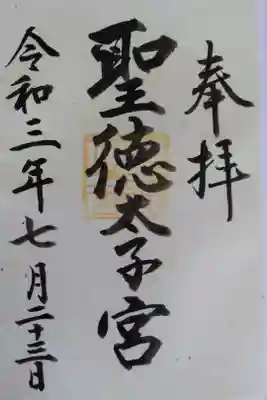 奉拝
聖徳太子宮
令和三年七月二十三日